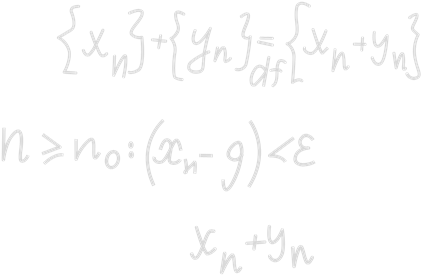 {xₙ}+{yₙ} =df {xₙ+yₙ}
n ≥ n₀: (xₙ-g) < ε
xₙ+yₙ